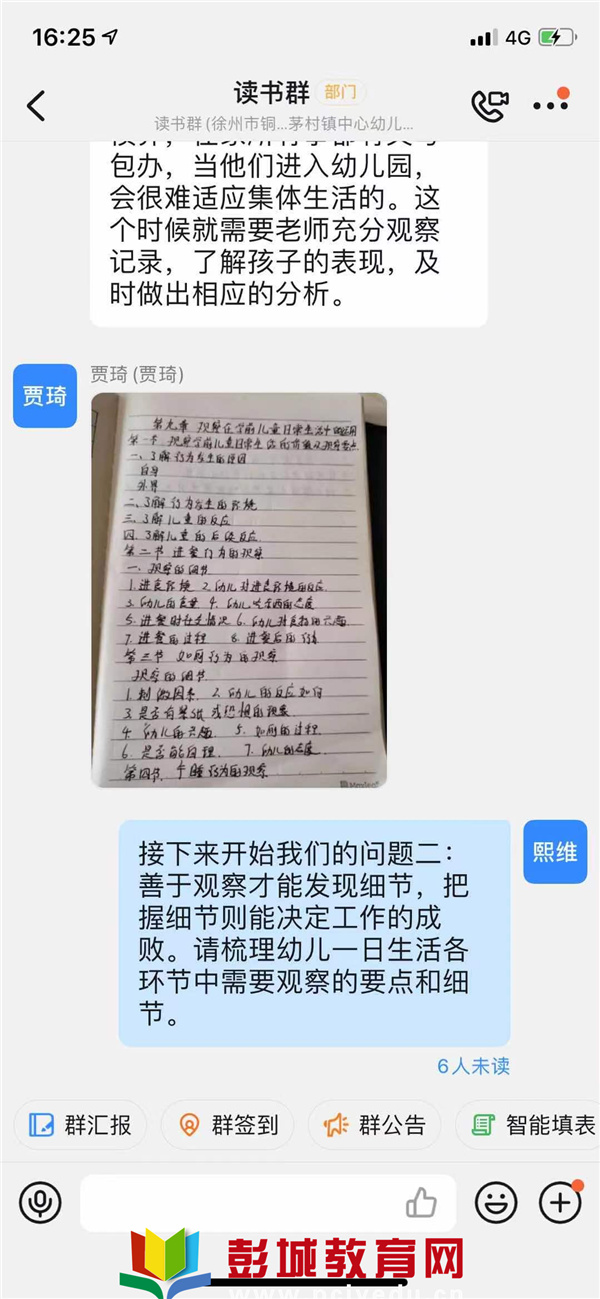 16:25
4G
读书群 部门
读书群 (徐州市铜...茅村镇中心幼儿...
包办，当他们进入幼儿园，
会很难适应集体生活的。这
个时候就需要老师充分观察
记录，了解孩子的表现，及
时做出相应的分析。
贾琦
贾琦 (贾琦)
第九章 观察在学前儿童日常生活中的运用
第一节 观察学前儿童日常生活的
一、了解行为发生的原因
自身
外界
二、了解行为发生的环境
三、了解儿童的反应
四、了解儿童的后续反应
第二节 进餐行为的观察
一、观察的细节
1.进食环境 2.幼儿对进食环境的反应
3.幼儿的食量 4.幼儿吃东西的态度
5.进餐时社交情况 6.幼儿对食物的兴趣
7.进餐的过程 8.进餐后的行为
第三节 如厕行为的观察
观察的细节
1.刺激因素 2.幼儿的反应如何
3.是否有紧张或恐惧的现象
4.幼儿的兴趣 5.如厕的过程
6.是否能自理 7.幼儿的态度
第四节 午睡行为的观察
接下来开始我们的问题二：
善于观察才能发现细节，把
握细节则能决定工作的成
败。请梳理幼儿一日生活各
环节中需要观察的要点和细
节。
熙维
6人未读
群汇报 群签到 群公告 智能填表
彭城教育网
www.pcjyedu.cn